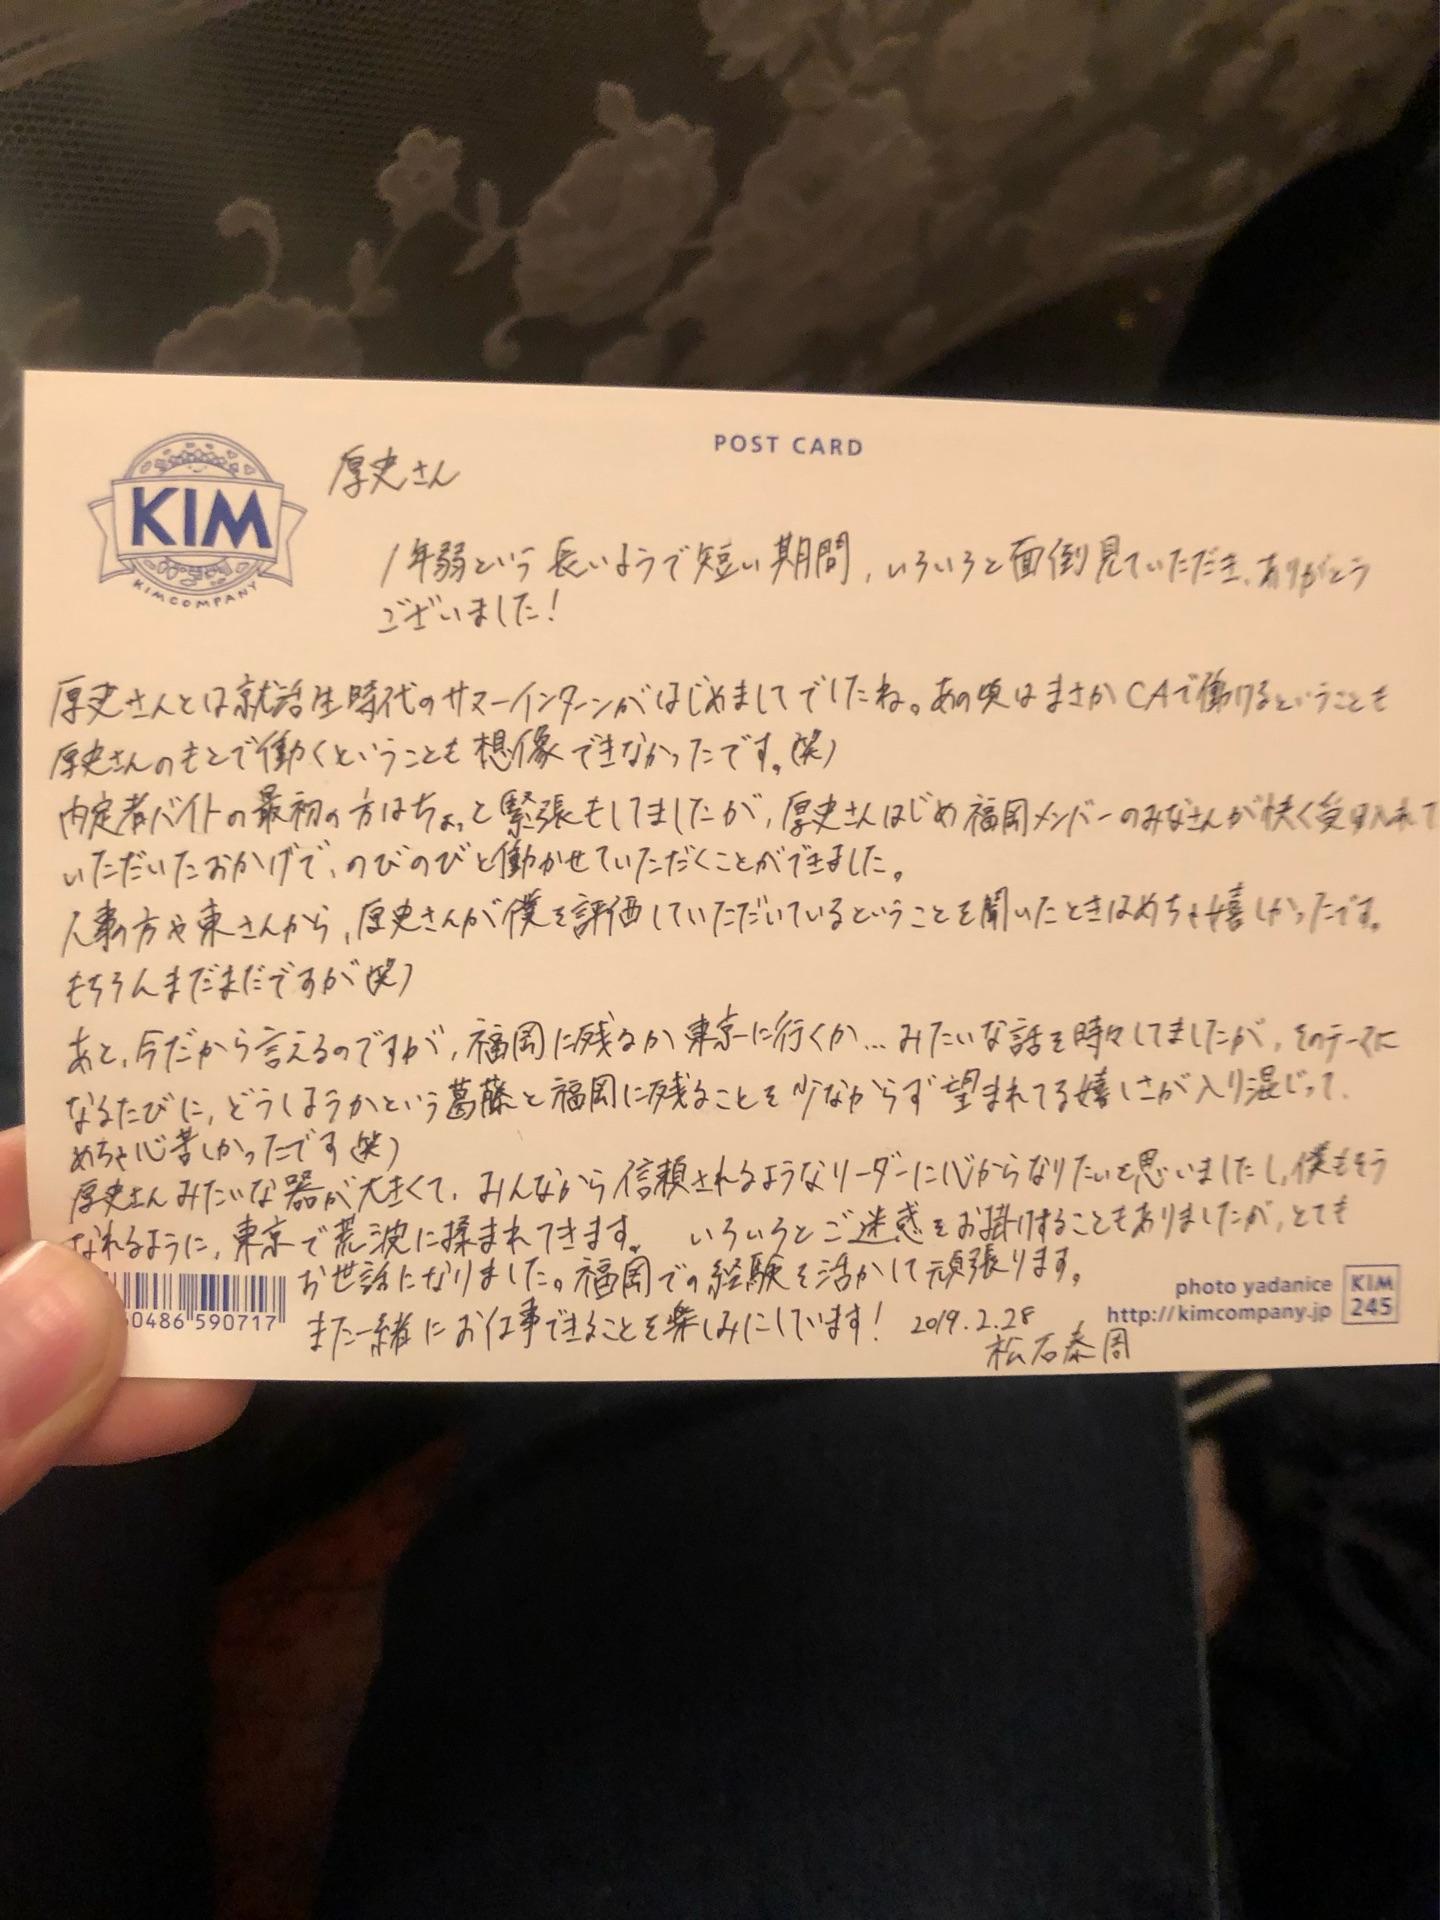 POST CARD
KIM
KIMCOMPANY
厚史さん
1年弱という長いようで短い期間、いろいろと面倒見ていただき、ありがとう
ございました!
厚史さんとは就活生時代のサマーインターンがはじめましてでしたね。あの頃はまさかCAで働けるということも
厚史さんのもとで働くということも想像できなかったです。(笑)
内定者バイトの最初の方はちょっと緊張もしてましたが、厚史さんはじめ福岡メンバーのみなさんが快く受け入れて
いただいたおかげで、のびのびと働かせていただくことができました。
人事の方や東さんから、厚史さんが僕を評価していただいているということを聞いたときはめちゃ嬉しかったです。
もちろんまだまだですが(笑)
あと、今だから言えるのですが、福岡に残るか東京に行くか…みたいな話を時々してましたが、そのテーマに
なるたびに、どうしようかという葛藤と福岡に残ることを少なからず望まれてる嬉しさが入り混じって、
めちゃ心苦しかったです(笑)
厚史さんみたいな器が大きくて、みんなから信頼されるようなリーダーに心からなりたいと思いましたし、僕もそう
なれるように、東京で荒波に揉まれてきます。 いろいろとご迷惑をお掛けすることもありましたが、とても
お世話になりました。福岡での経験を活かして頑張ります。
また一緒にお仕事できることを楽しみにしています! 2019.2.28
松石泰周
0486 590717
photo yadanice
http://kimcompany.jp
KIM
245